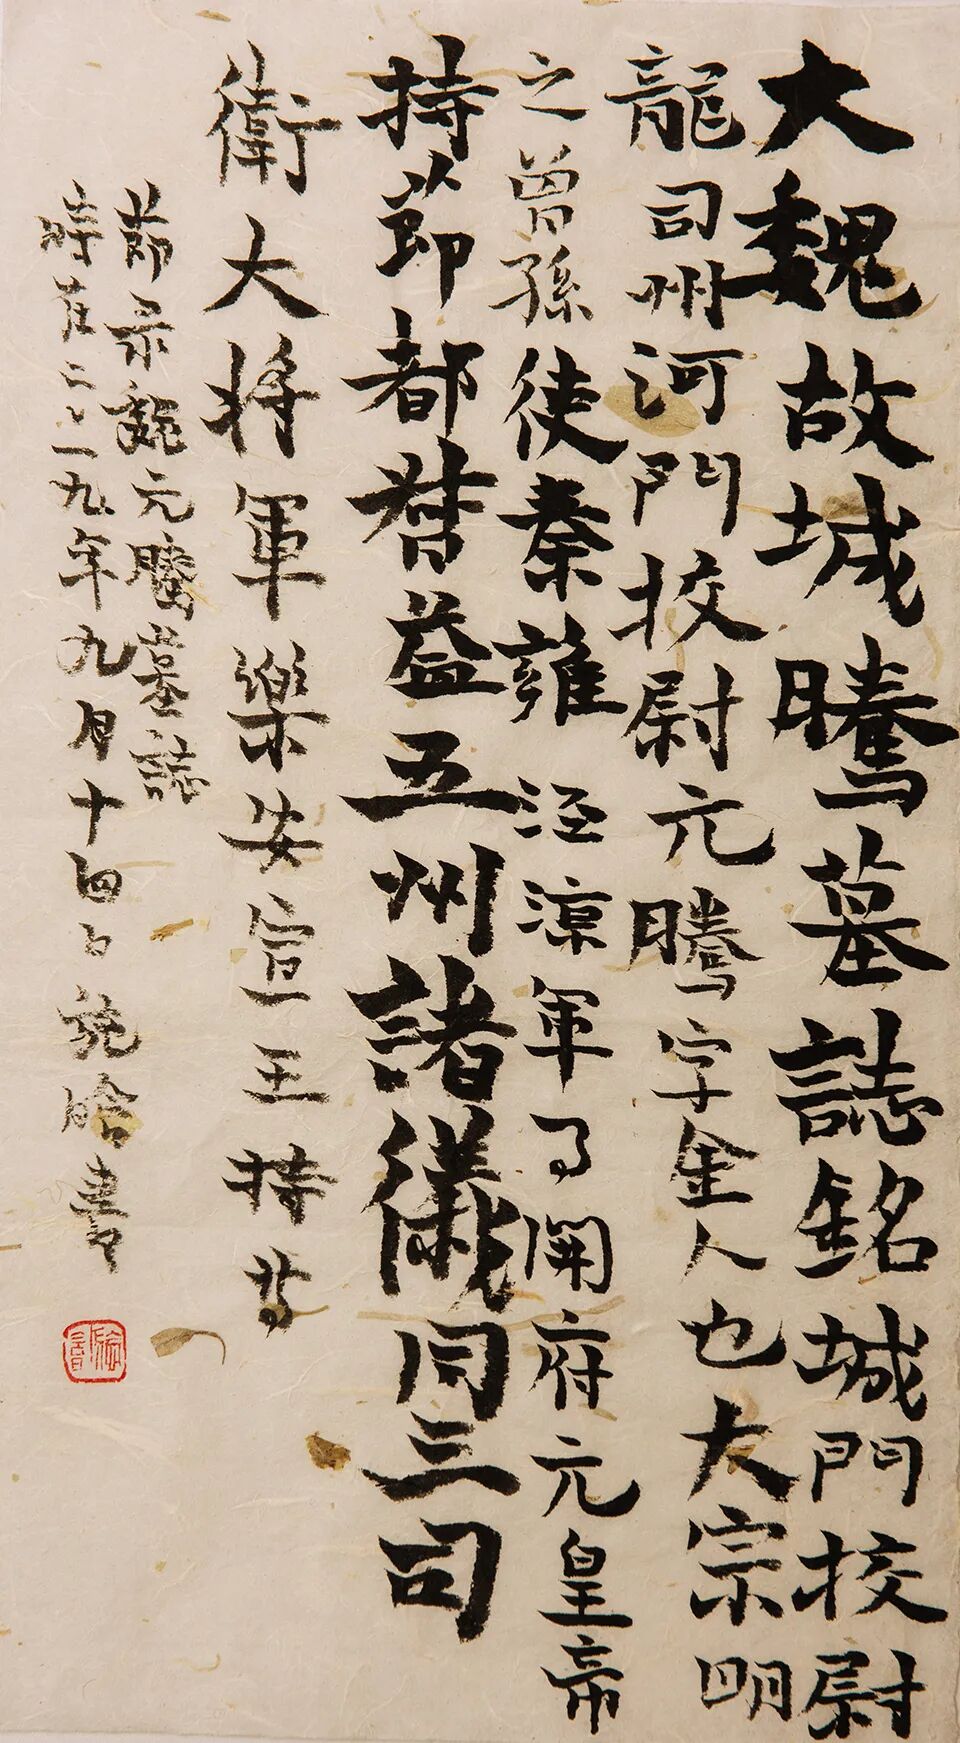 大魏故城騰墓誌銘城門校尉
龍司州河門校尉元騰字金人也大宗明
之曾孫使秦雍涇涼軍事開府元皇帝
持節都督益五州諸儀同三司
衛大将軍樂安宣王持
節录魏元騰墓誌
時在二〻一九年九月十四日施晗書